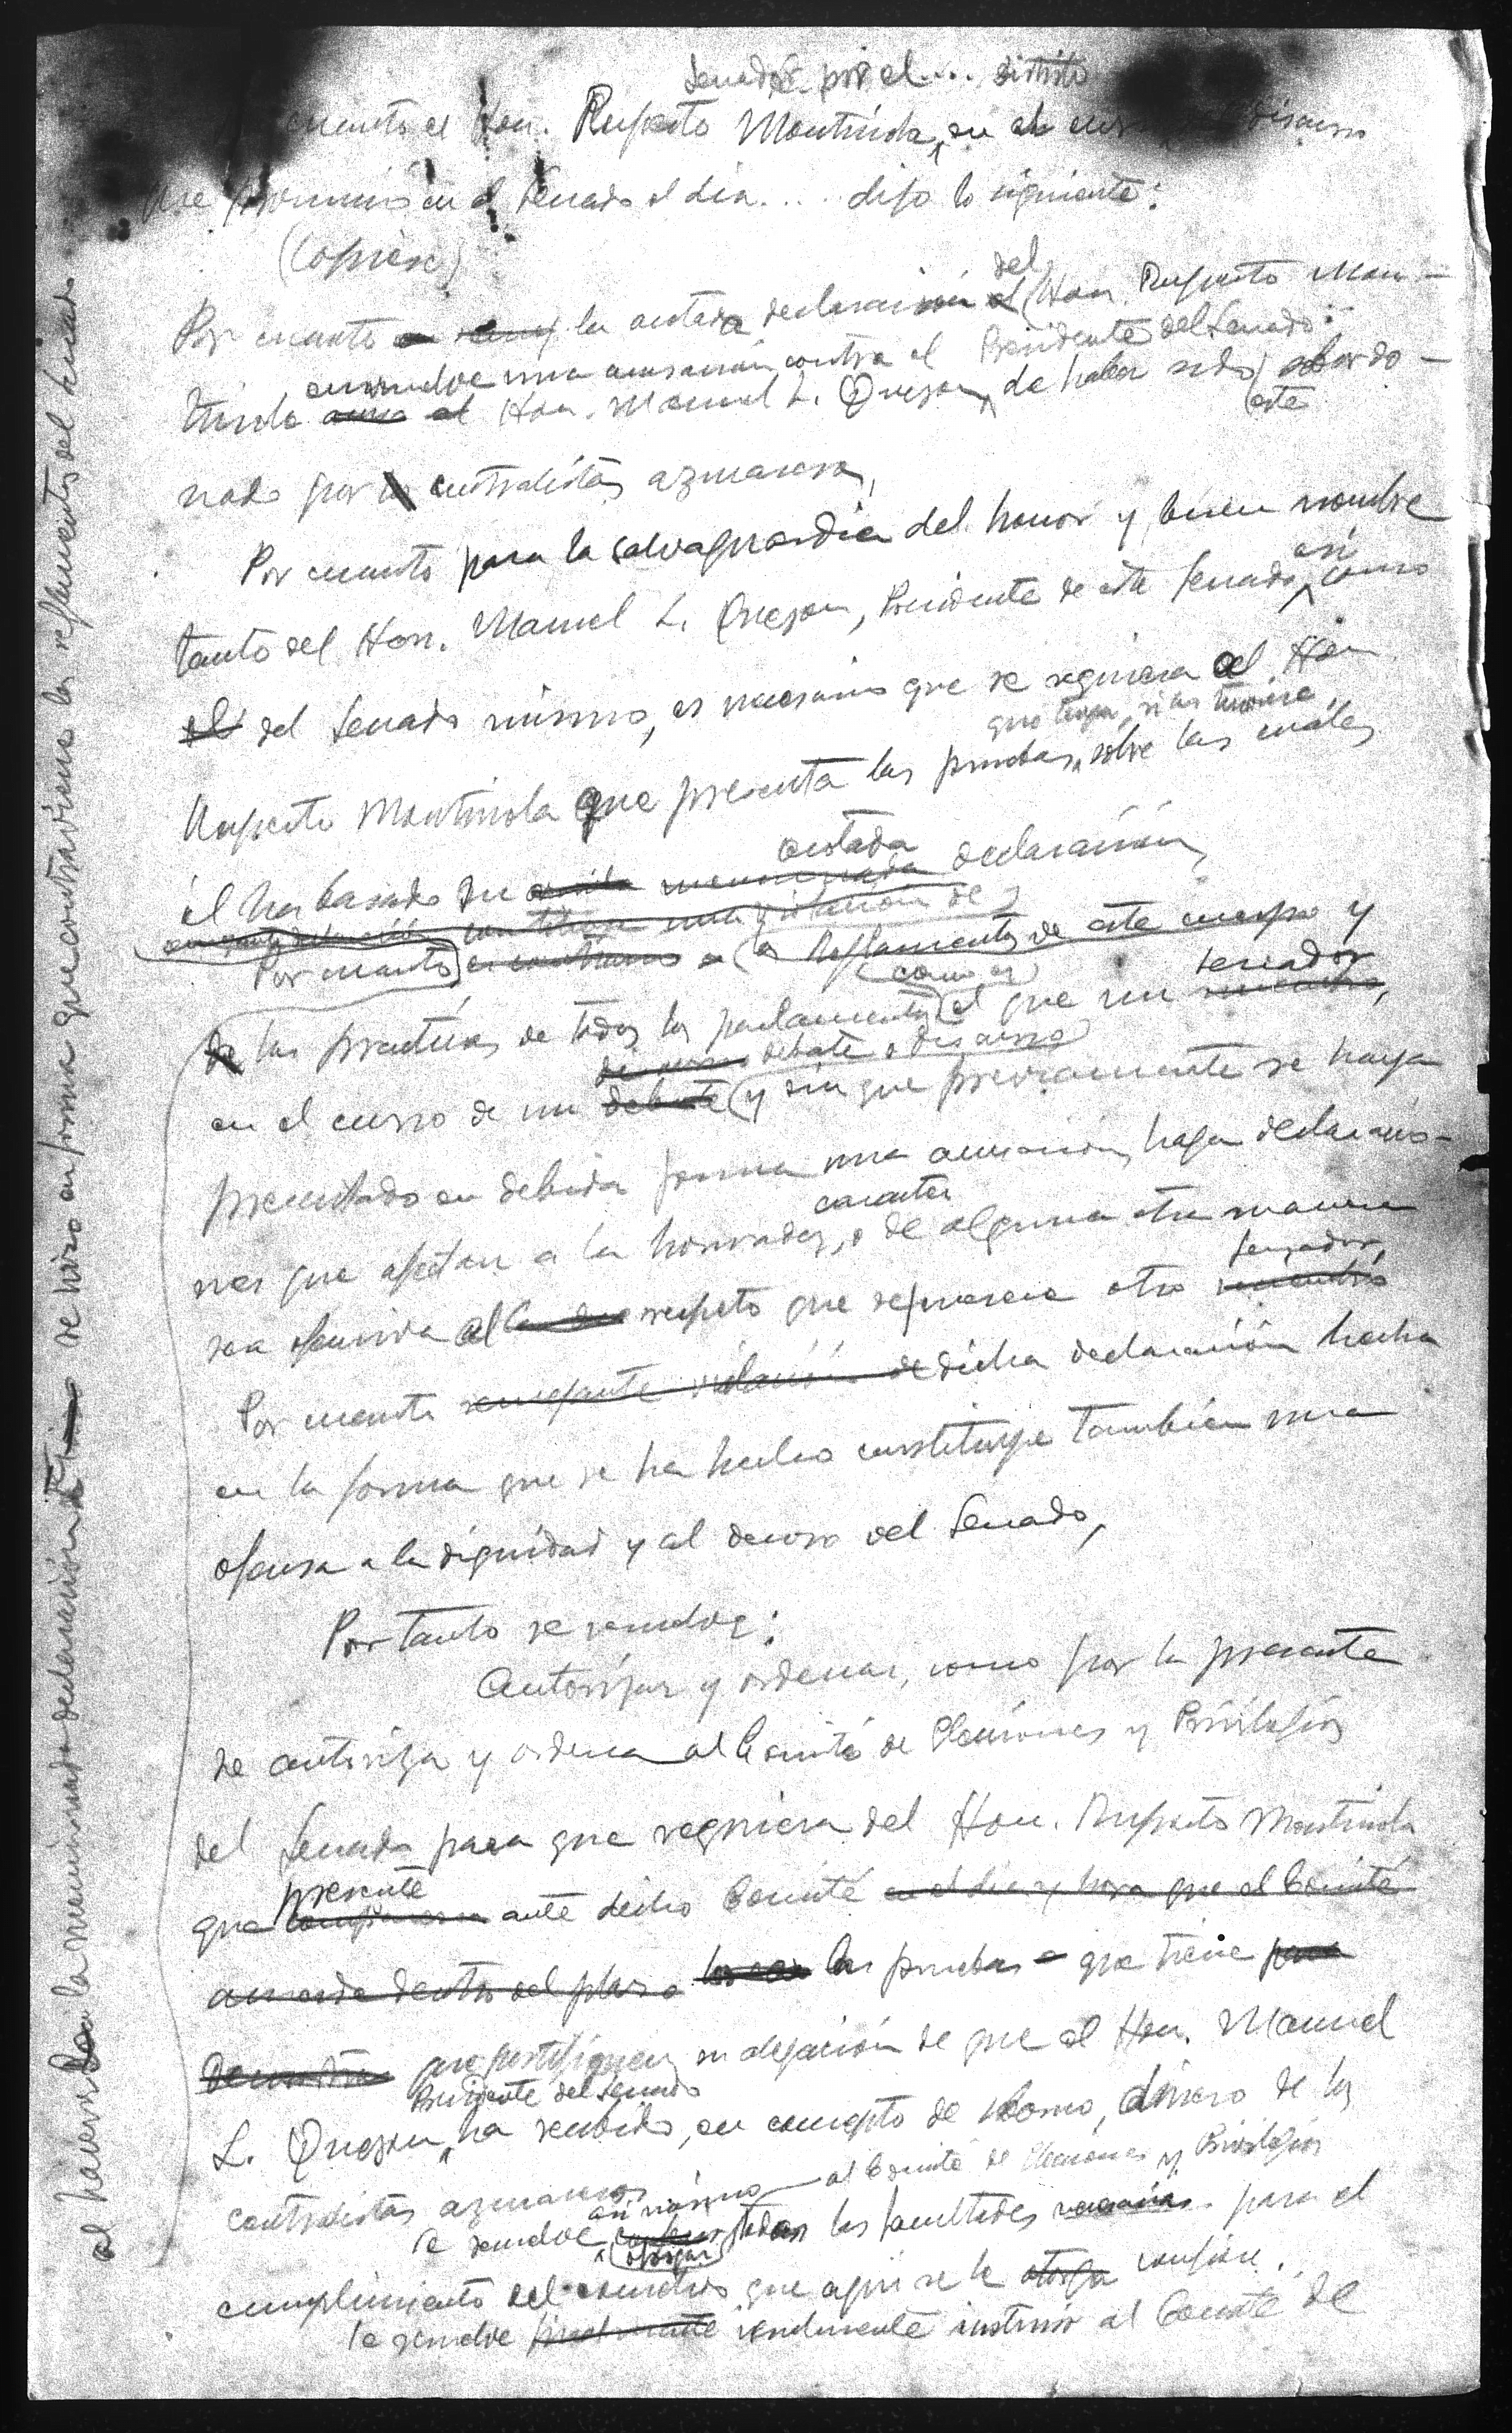 Senador por el ... distrito
cuanto el Hon. Ruperto Montinola, en el discurso
que pronunció en el Senado el dia .... dijo lo siguiente:
(Copiese)
del
Por cuanto la citada declaración el Hon. Ruperto Mon-
envuelve una acusación contra el Presidente del Senado
tinola Hon. Manuel L. Quezon, de haber sido sobor
este
nado por contratistas azucareros,
Por cuanto para la salvaguardia del honor y buen nombre
así
tanto del Hon. Manuel L. Quezon, Presidente de este Senado, como
el del Senado mismo, es necesario que se requiera al Hon.
que tenga, si las tuviere,
Ruperto Montinola que presente las pruebas, sobre las cuales
citada
él ha basado su mencionada declaración,
constituye una violación de
Por cuanto es contrario a los Reglamentos de este cuerpo y
como es senador
de las practicas de todos los parlamentos el que un miembro,
debate o discurso
en el curso de un debate y sin que previamente se haya
presentado en debida forma una acusación, haga declaracio-
caracter
nes que afectan a la honradez, o de alguna otra manera
senador,
sea ofensiva al respeto que se merece otro miembro
Por cuanto semejante violación de dicha declaración hecha
en la forma que se ha hecho constituye también una
ofensa a la dignidad y al decoro del Senado,
Por tanto se resuelve:
Autorizar y ordenar, como por la presente
se autoriza y ordena al Comité de Elecciones y Privilegios
del Senado para que requiera del Hon. Ruperto Montinola
presente
que comparezca ante dicho Comité en el dia y hora que el Comité
acuerde dentro del plazo las pruebas que tiene para
demostrar que justifiquen su alegación de que el Hon. Manuel
Presidente del Senado
L. Quezon, ha recibido, en concepto de soborno, dinero de los
contratistas azucareros
asi mismo al Comité de Elecciones y Privilegios
Se resuelve otorgar todas las facultades necesarias para el
cumplimiento del cometido que aqui se le otorga confiere.
Se resuelve finalmente instruir al Comité de
al hacerse la mencionada declaración se hizo en forma que contraviene los reglamentos del Senado